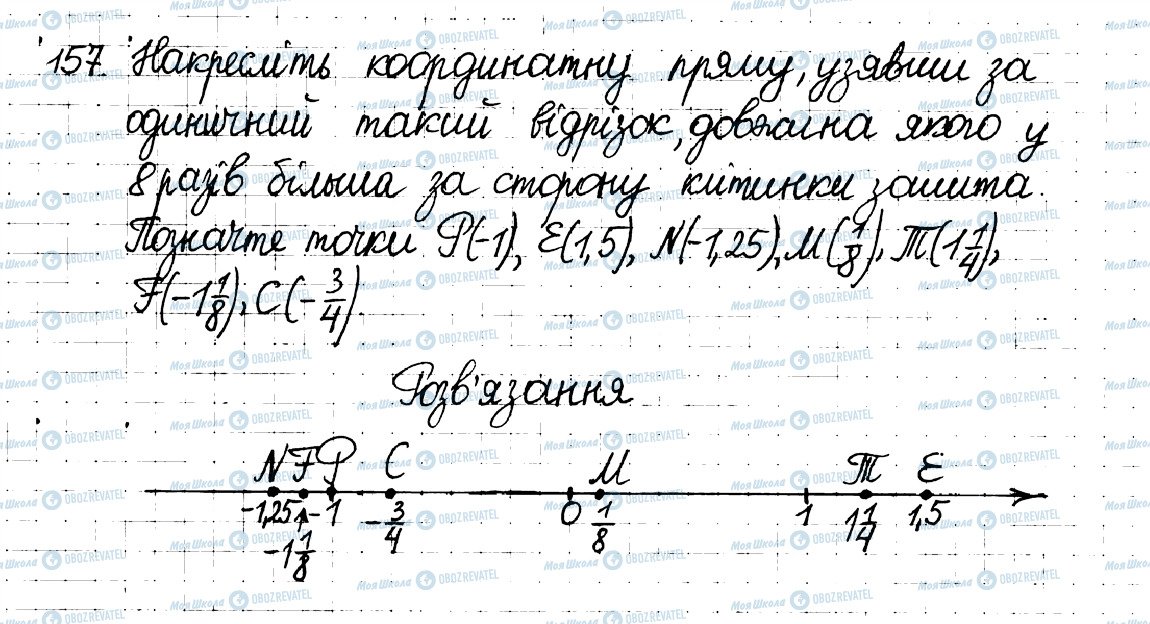 157. Накресліть координатну пряму, узявши за
одиничний такий відрізок, довжина якого у
8 разів більша за сторону клітинки зошита.
Позначте точки P(-1), E(1,5), N(-1,25), M(1/8), T(1 1/4),
F(-1 1/8), C(-3/4).
Розв'язання
N F P C M T E
-1,25 -1 -3/4 0 1/8 1 1 1/4 1,5
-1 1/8
МояШкола OBOZREVATEL